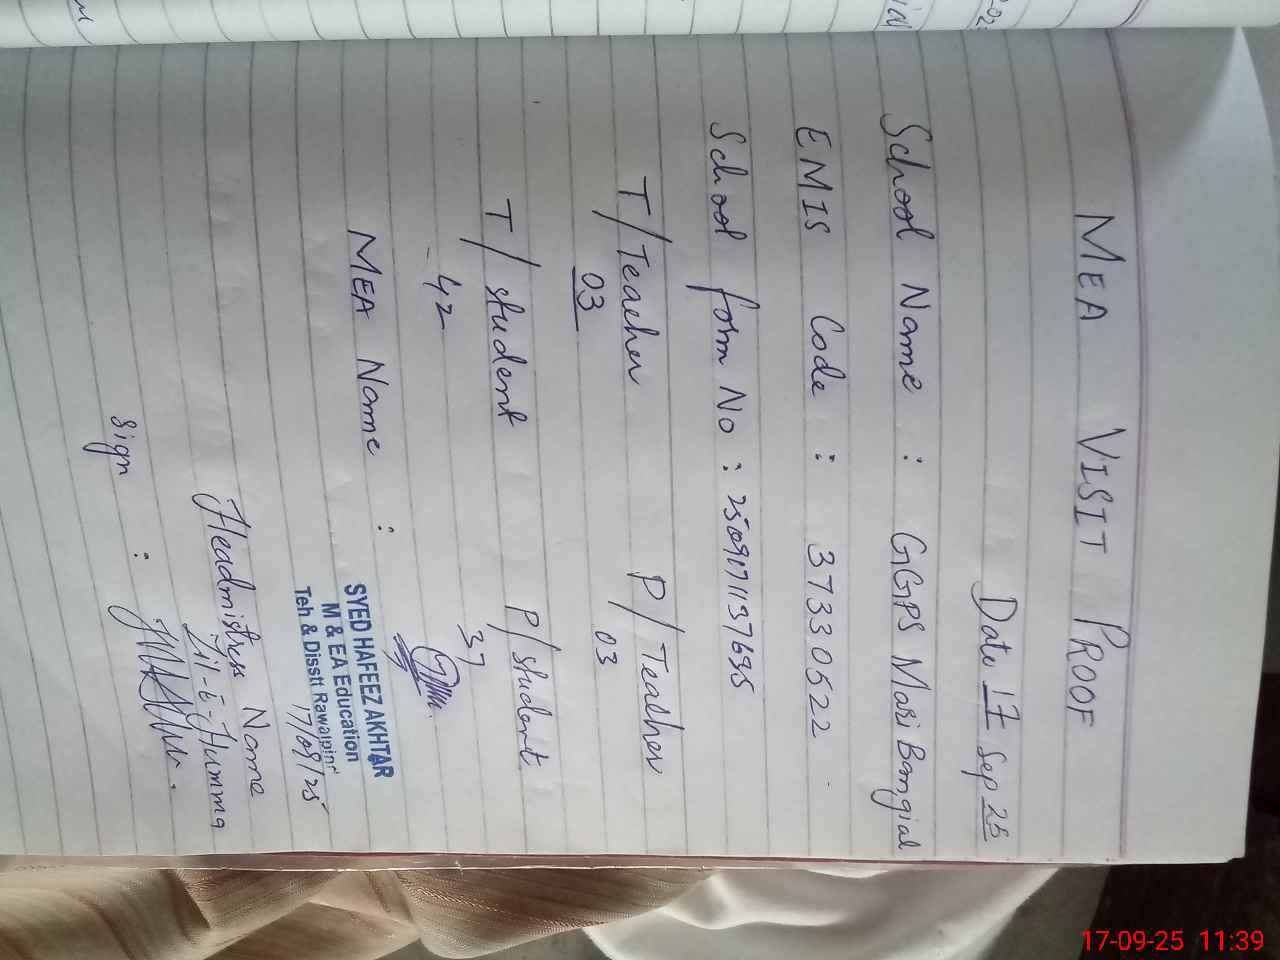 MEA VISIT PROOF
Date 17 Sep 25
School Name : GGPS Mari Bangial
EMIS Code : 37330522
School form No : 
T/Teacher P/Teacher
03 03
T/student P/student
42 37
MEA Name :
SYED HAFEEZ AKHTAR
M & EA Education
Teh & Disstt Rawalpin
17/09/25
Headmistress Name
Zil-E-Humma
Sign :
17-09-25 11:39